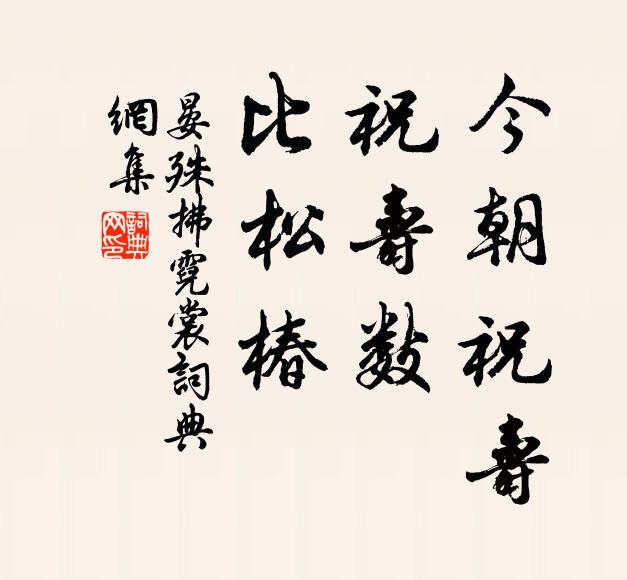 今朝祝壽
祝壽數
比松椿
晏殊拂霓裳詞典
網集
詞典
网印